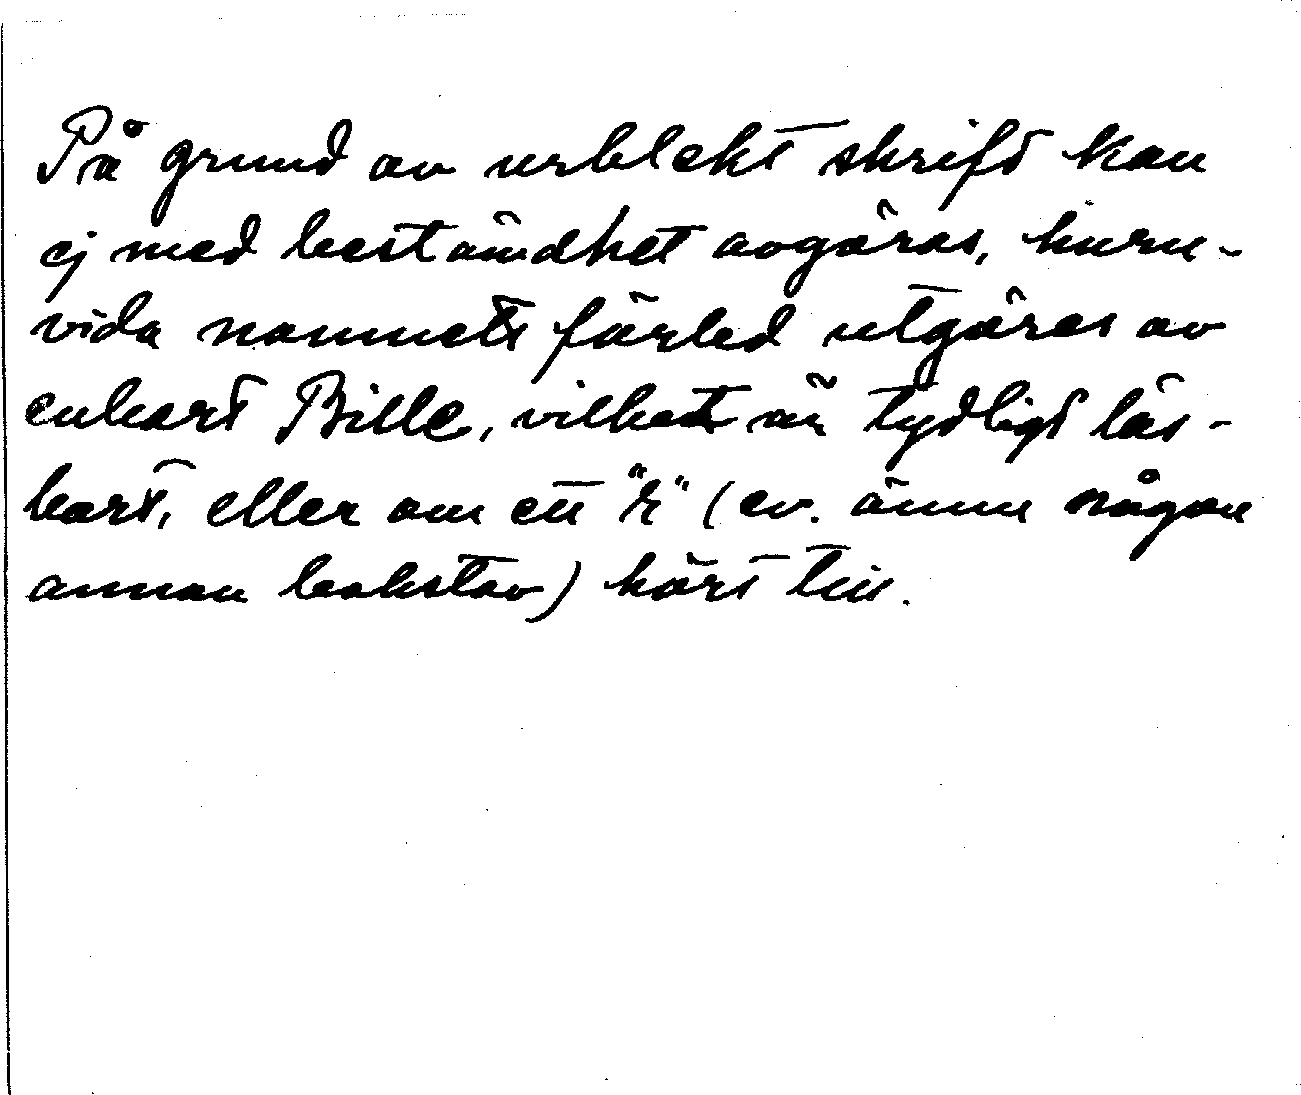 På grund av urblekt skrift kan
ej med bestämdhet avgöras, huru-
vida namnets förled utgöres av
enbart Bille, vilket är tydligt läs-
bart, eller om ett "r" (ev. ännu någon
annan bokstav) hört till.